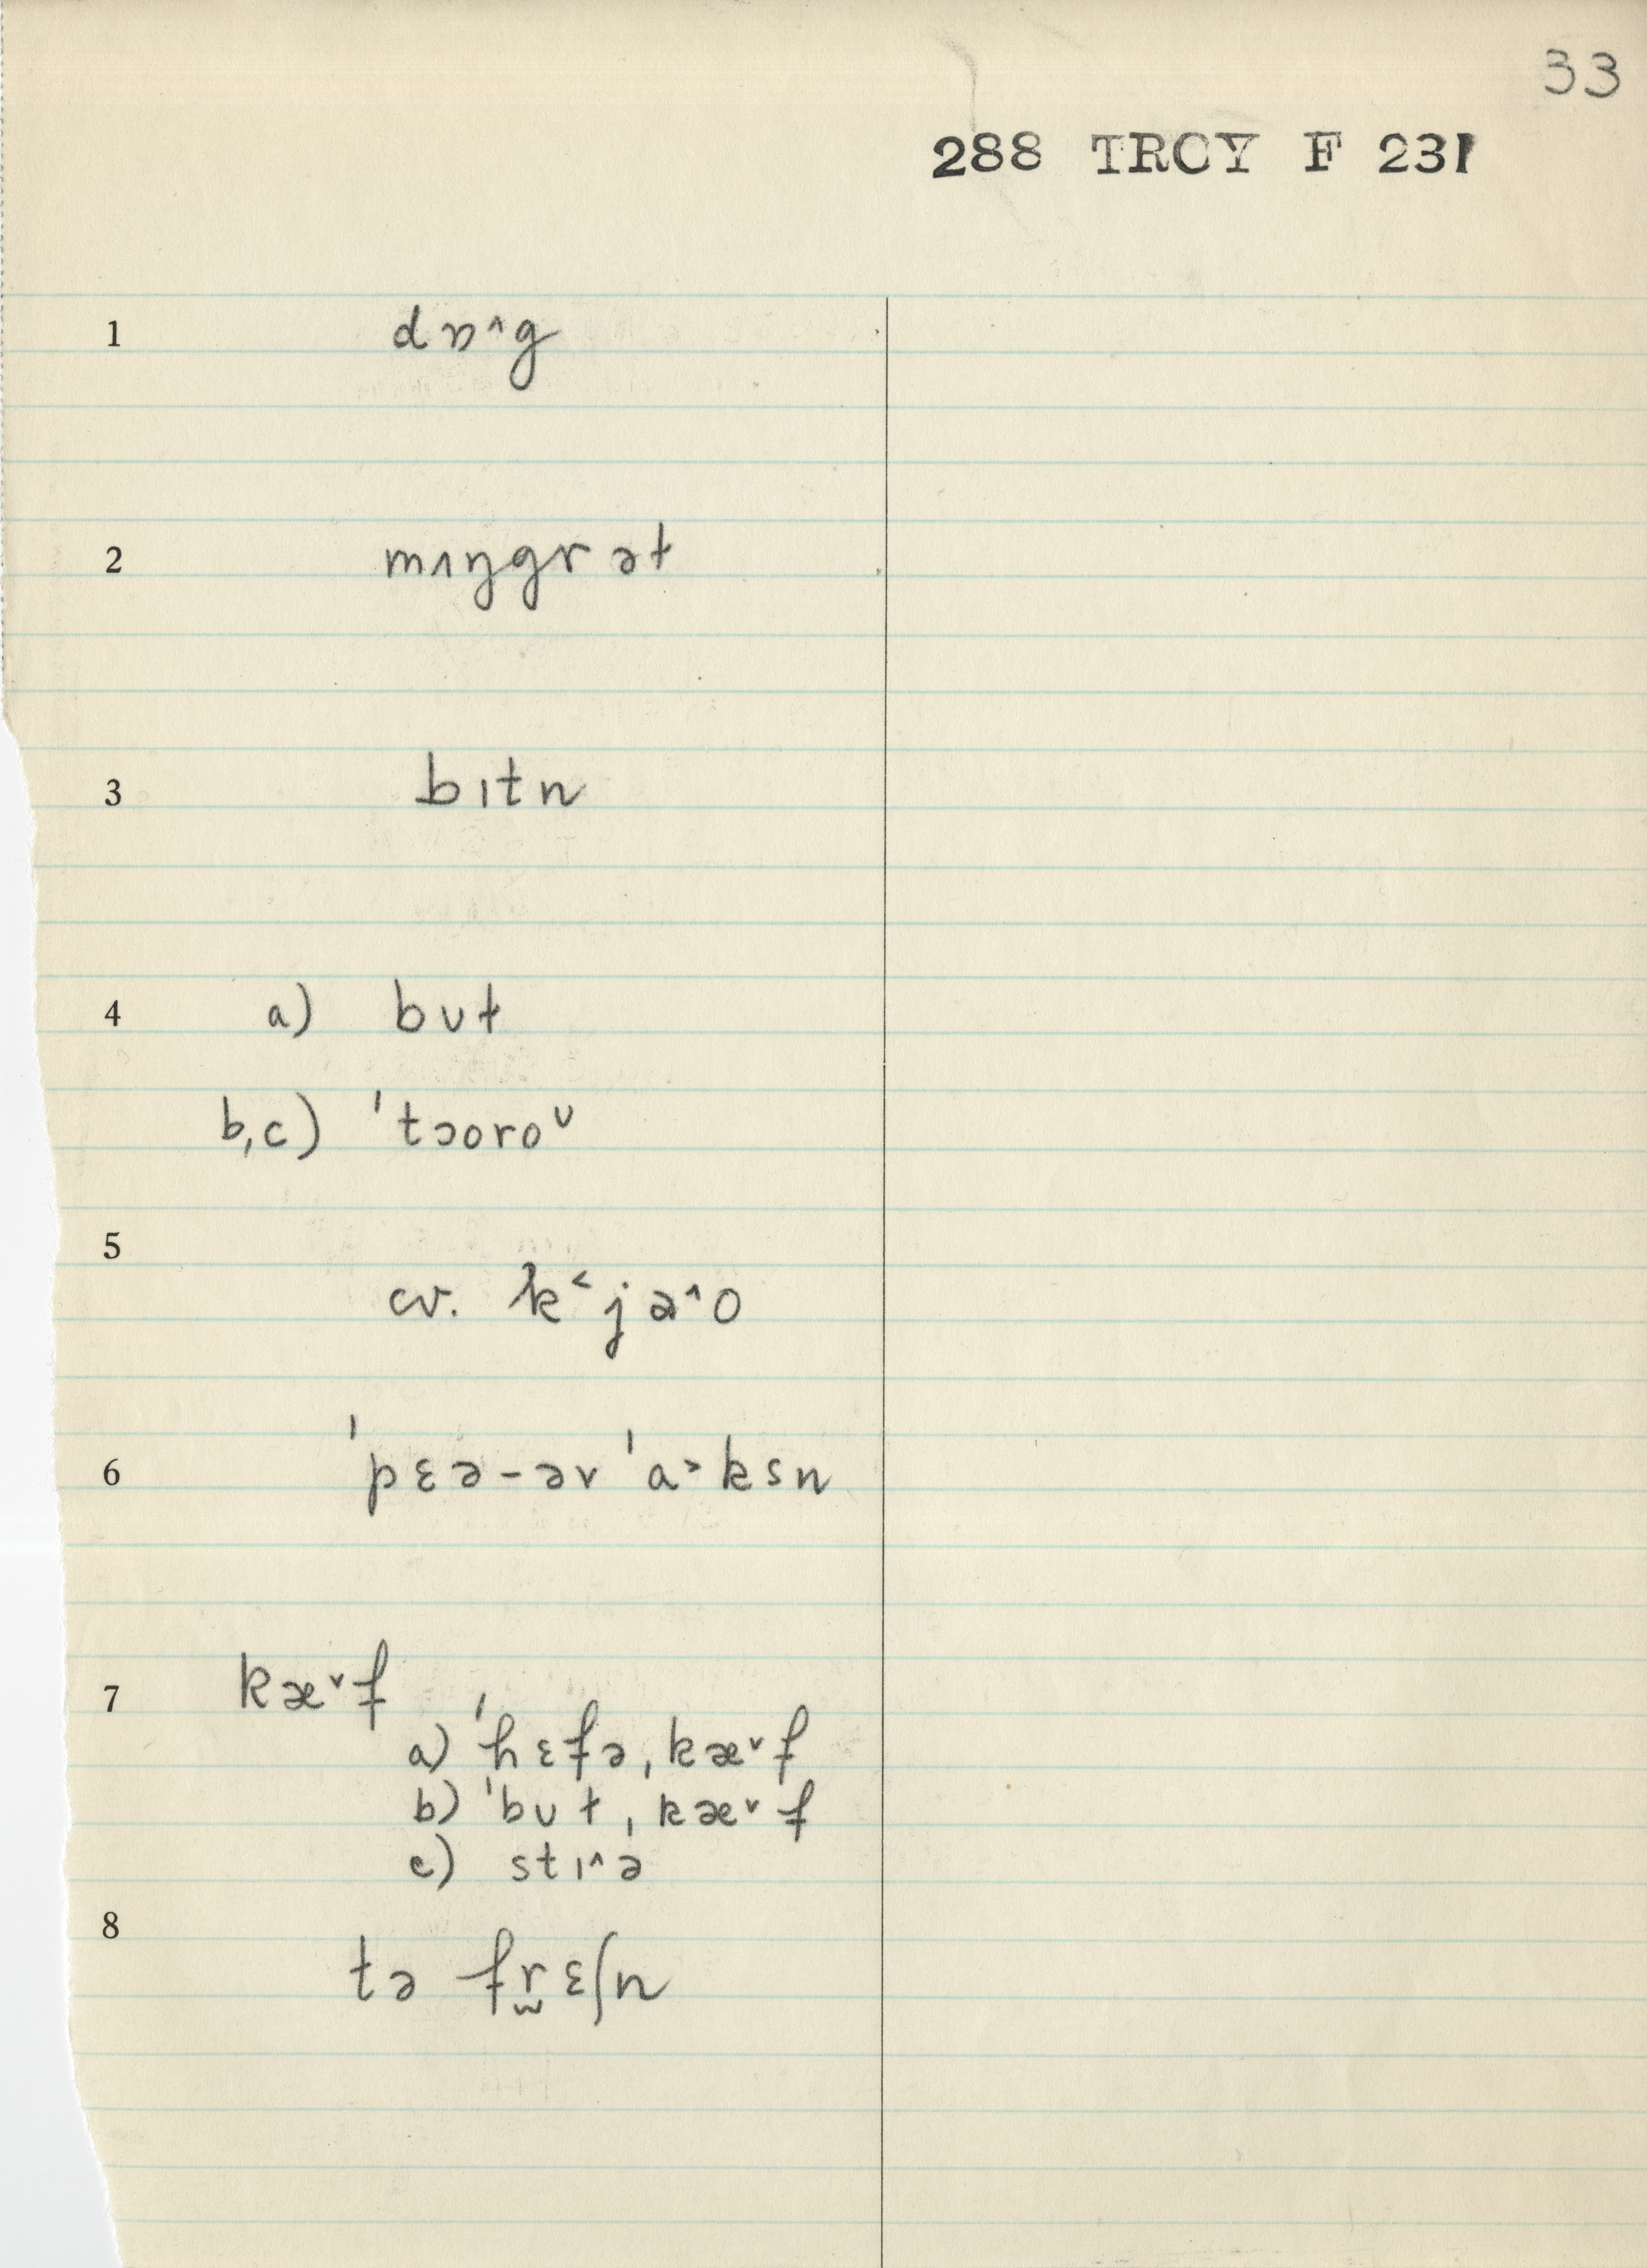 33
288 TROY F 231
1 dɒ^g
2 mʌŋgrəɫ
3 bɪtn
4 a) bʊɫ
b,c) 'tɔoroᴜ
5 cv. k˂ja^o
6 'pɛə-əv 'a˃ksn
7 kæ˅f
a) 'hɛfə ˌkæ˅f
b) 'bʊɫ ˌkæ˅f
c) stɪ^ə
8 tə fr̫ɛʃn